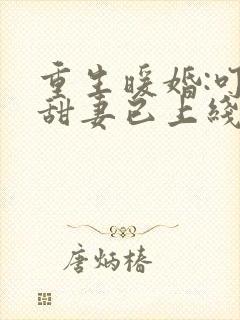 重生暖婚:叮
甜妻已上綫
唐炳椿